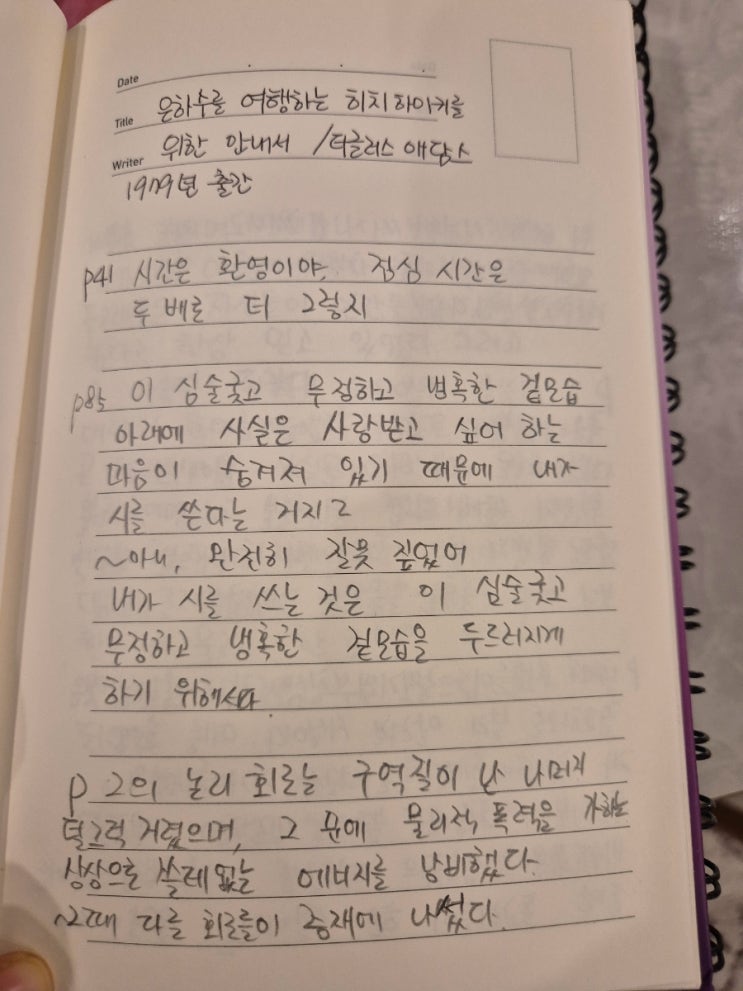 Date
Title 은하수를 여행하는 히치하이커를
Writer 위한 안내서 / 더글러스 애덤스
1979년 출간
p41 시간은 환영이야. 점심 시간은
두 배로 더 그렇지
p85 이 심술궂고 무정하고 냉혹한 겉모습
아래에 사실은 사랑받고 싶어 하는
마음이 숨겨져 있기 때문에 내가
시를 쓴다는 거지?
~아니, 완전히 잘못 짚었어
내가 시를 쓰는 것은 이 심술궂고
무정하고 냉혹한 겉모습을 두드러지게
하기 위해서다.
p 그의 논리 회로는 구역질이 난 나머지
덜그럭 거렸으며, 그 문에 물리적 폭력을 가하는
상상으로 쓸데없는 에너지를 낭비했다.
~그때 다른 회로들이 중재에 나섰다.